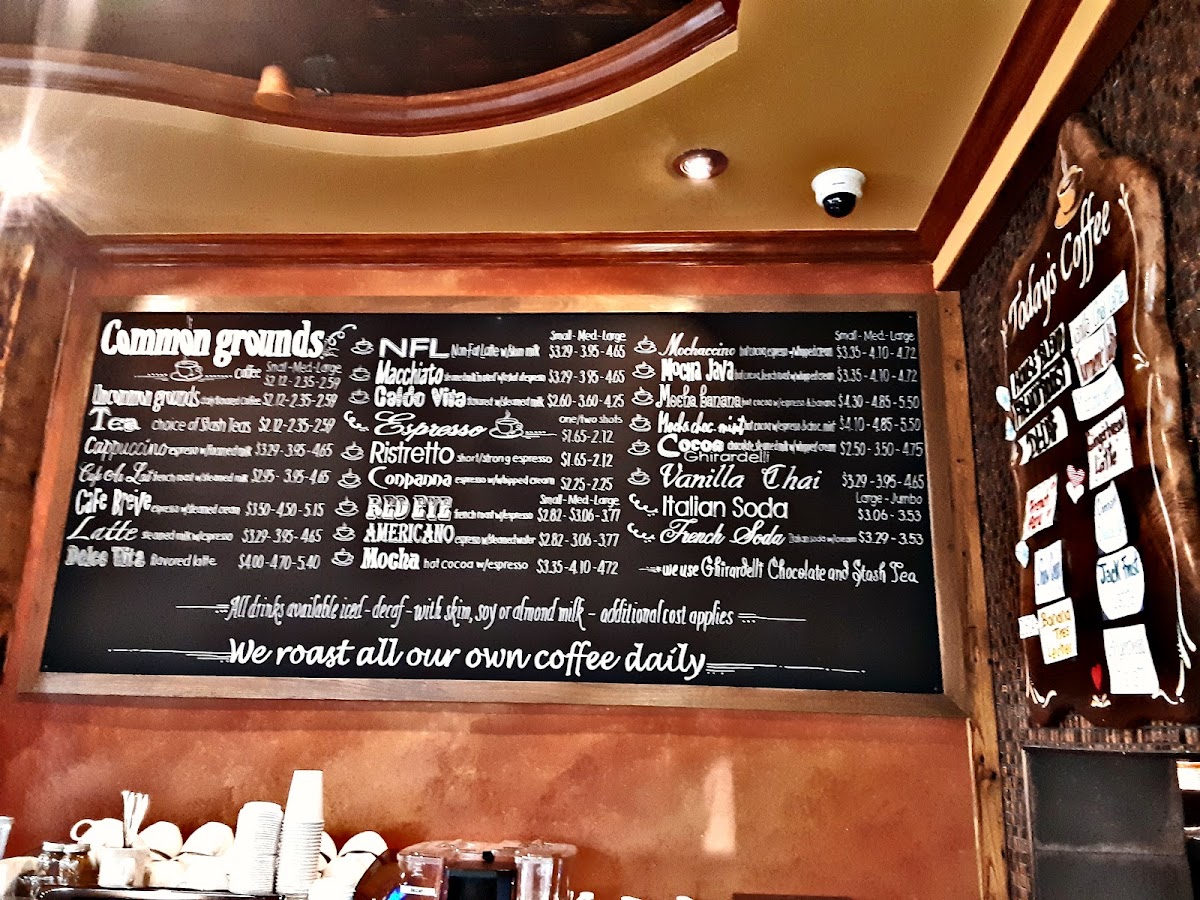 Common grounds
Small-Med-Large
coffee $2.12-2.35-2.59
Uncommon grounds daily flavored coffee $2.12-2.35-2.59
Tea choice of Stash Teas $2.12-2.35-2.59
Cappuccino espresso w/foamed milk $3.29-3.95-4.65
Café Au Lait french roast w/steamed milk $2.95-3.95-4.65
Cafe Breve espresso w/steamed cream $3.50-4.50-5.15
Latte steamed milk w/espresso $3.29-3.95-4.65
Dolce Vita flavored latte $4.00-4.70-5.40
Small-Med-Large
NFL Non-Fat Latte w/skim milk $3.29-3.95-4.65
Macchiato $3.29-3.95-4.65
Caldo Vita flavored w/steamed milk $2.60-3.60-4.25
one/two shots
Espresso $1.65-2.12
Ristretto short/strong espresso $1.65-2.12
Conpanna espresso w/whipped cream $2.25-2.25
Small-Med-Large
RED EYE french roast w/espresso $2.82-$3.06-3.77
AMERICANO espresso w/steamed water $2.82-3.06-3.77
Mocha hot cocoa w/espresso $3.35-4.10-4.72
Small-Med-Large
Mochaccino hot cocoa, espresso+whipped cream $3.35-4.10-4.72
Mocha Java hot cocoa, french roast w/whipped cream $3.35-4.10-4.72
Mocha Banana hot cocoa w/espresso & banana $4.30-4.85-5.50
Mocha choc. mint hot cocoa w/espresso & choc. mint $4.10-4.85-5.50
Cocoa chocolate, steamed milk w/whipped cream $2.50-3.50-4.75
Ghirardelli
Vanilla Chai $3.29-3.95-4.65
Large-Jumbo
Italian Soda $3.06-3.53
French Soda Italian soda w/cream $3.29-3.53
*we use Ghirardelli Chocolate and Stash Tea
All drinks available iced - decaf - with skim, soy or almond milk - additional cost applies
We roast all our own coffee daily
Today's Coffee
Latte
Jack Frost
Banana
Tres
Leches